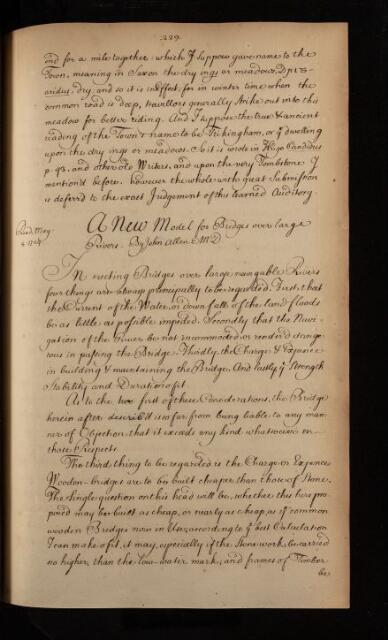 229.
and for a mile together: which I suppose gave name to the
Town, meaning in Saxon the dry ings or meadows,
aridus, dry, and so it is in effect, for in winter time when the
common road is deep, travellers generally strike out into this
meadow for better riding. And I suppose the true & ancient
reading of the Town's name to be Trikingham, or ye dwelling
upon the dry ings or meadows. So it is wrote in Hugo Candidus
p. 93, and other old Writers, and upon the very Tombstone I
mention'd before. however the whole with great Submission
is deferred to the exact Judgement of this learned Auditory.
Read May
A New Model for Bridges over large
Rivers. By John Allen M D
In erecting Bridges over large navigable Rivers
four things are always principally to be regarded. First, that
the Current of the Water, or down falls of the land floods
be as little as possible impeded. Secondly that the Navi-
gation of the River be not incommoded, or render'd dange-
rous in passing the Bridge. Thirdly, the Charge & Expence
in building & maintaining the Bridge. And lastly ye Strength
Stability and Duration of it.
As to the two first of these Considerations, the Bridge
herein after describ'd is so far from being liable to any man-
ner of Objection, that it exceeds any kind whatsoever in
those Respects.
The third thing to be regarded is the Charge or Expence
Wooden-bridges are to be built cheaper than those of Stone.
The single question on this head will be, whether this here pro-
posed may be built as cheap, or nearly as cheap, as if common
wooden Bridges now in Use; according to ye best Calculation
I can make of it, it may, especially if the Stone work be carried
no higher than the low-water mark, and frames of Timber
be